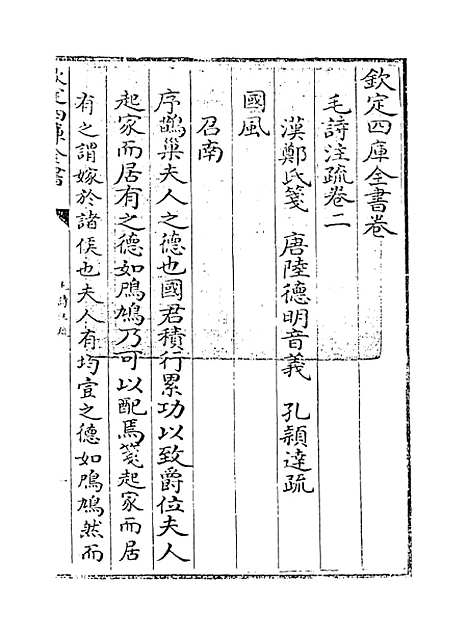 欽定四庫全書卷
毛詩注疏卷二
漢鄭氏箋　唐陸德明音義　孔穎達疏
國風
召南
序鵲巢夫人之德也國君積行累功以致爵位夫人
起家而居有之德如鳲鳩乃可以配焉箋起家而居
有之謂嫁於諸侯也夫人有均壹之德如鳲鳩然而
欽定四庫全書
毛詩注疏
一